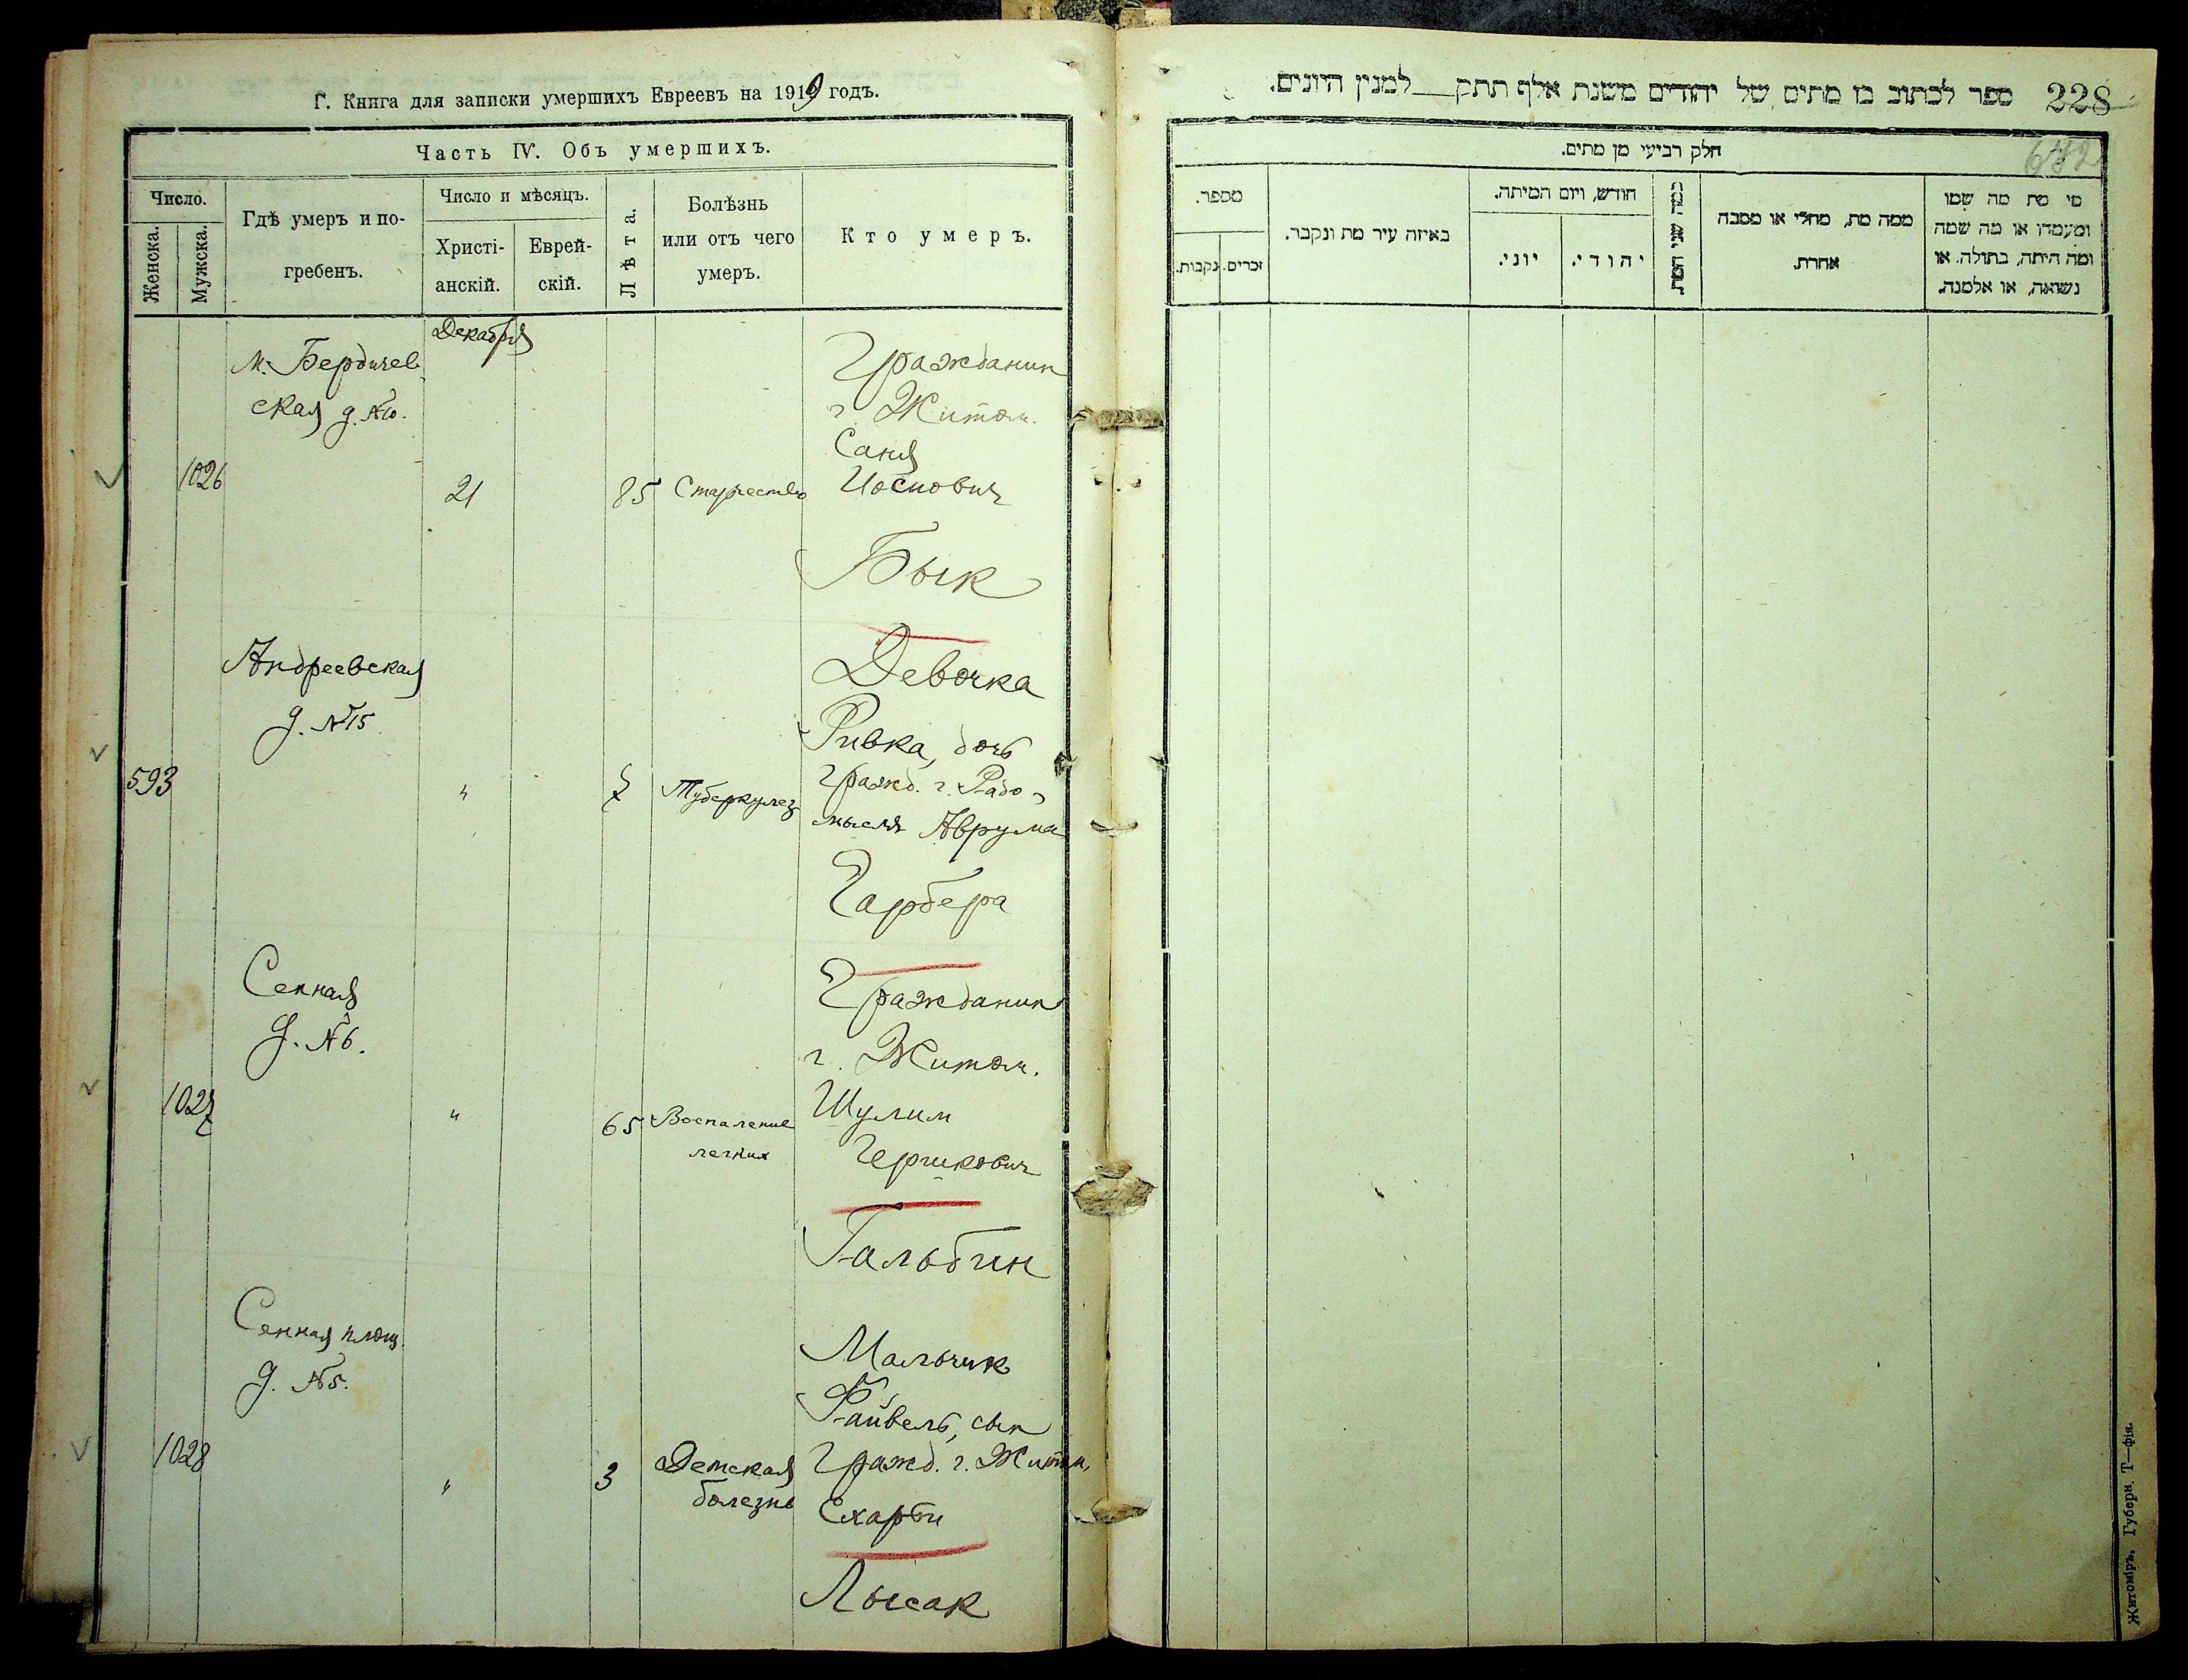 Г. Книга для записки умершихъ Евреевъ на 1919 годъ.
Часть IV. Объ умершихъ.
Число.
Женска.
Мужска.
Гдѣ умеръ и по-
гребенъ.
Число и мѣсяцъ.
Христі-
анскій.
Еврей-
скій.
Лѣта.
Болѣзнь
или отъ чего
умеръ.
Кто умеръ.
Декабря
м. Бердичев
ская д. №10.
1026
21
85
Старчество
Гражданин
г. Житом.
Саня
Иосиович
Бык
Андреевская
д. №15
593
"
7
Туберкулез
Девочка
Ривка, дочь
гражд. г. Радо-
мысля Аврума
Гарбера
Сенная
д. №6.
1027
"
65
Воспаление
легких
Гражданин
г. Житом.
Шулим
Гершкович
Гальбин
Сенная площ.
д. №5.
1028
"
3
Детская
болезнь
Мальчик
Файвель, сын
гражд. г. Житом.
Лысак
228
ספר לכתוב בו מתים של יהודים משנת אלף תתק__למנין היונים.
682
חלק רביעי מן מתים.
מספר.
נקבות.
זכרים.
באיזה עיר מת ונקבר.
חודש, ויום המיתה.
יוני.
יהודי.
כמה שני המת
ממה מת, מחלי או מסבה
אחרת.
מי מת מה שמו
ומעמדו או מה שמה
ומה היתה, בתולה, או
נשואה, או אלמנה.
Житоміръ, Губерн. Т—фія.